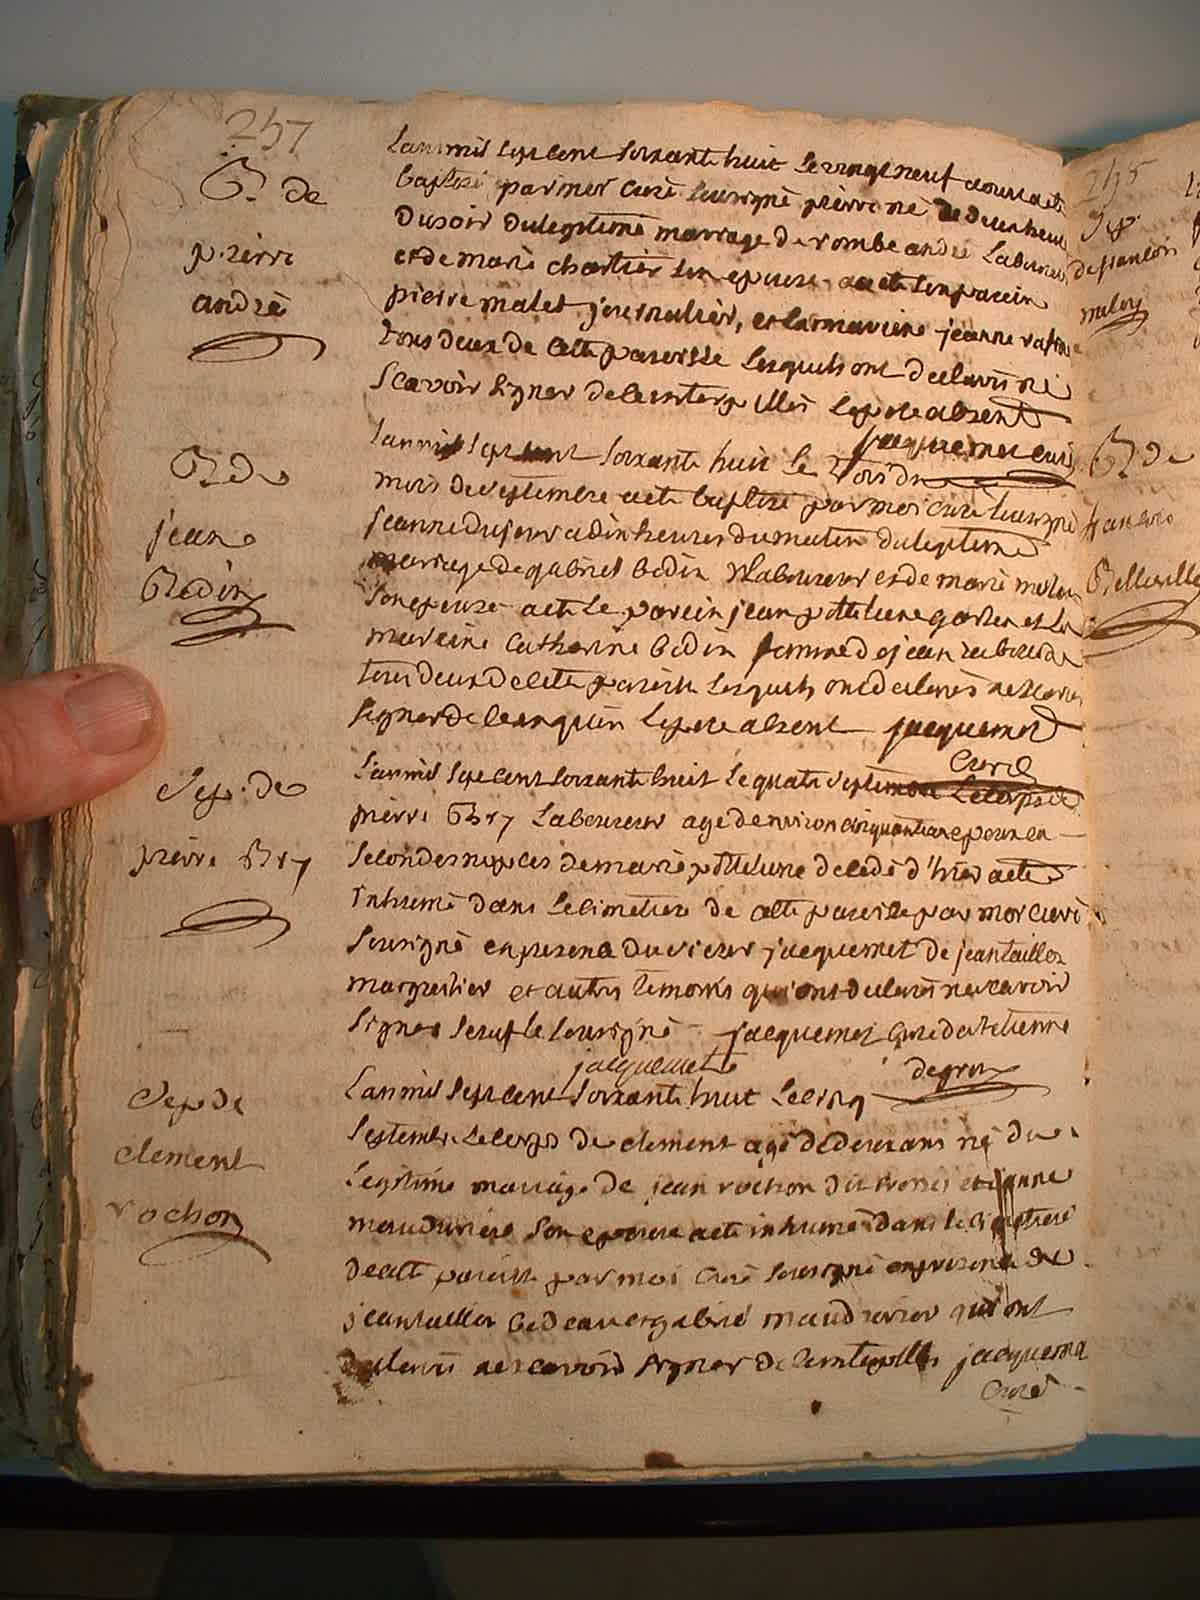 257
B. de
pierre
andré
Lan mil sept cent soixante huit le vingt neuf aoust a été
baptisé par moi curé sousigné pierre né de deux heures
du soir du legitime mariage de rombe andré Laboureur
et de marie chartier son epouse a été son parein
pierre malet journalier, et la mareine jeanne
tous deux de cette paroisse lesquels ont declarés ne
scavoir signer de ce interpellés le pere absent
jacquemet curé
B de
jean
Bedin
Lan mil sept cent soixante huit le trois du
mois de septembre a été baptisé par moi curé sousigné
jeanne du jour a dix heures du matin du legitime
mariage de gabriel bedin Laboureur et de marie
son epouse a été le parein jean potelune garçon et la
mareine catherine bedin femme de jean
tous deux de cette paroisse lesquels ont declarés ne scavoir
signer de ce enquis le pere absent jacquemet
curé
Sep. de
pierre Bry
Lan mil sept cent soixante huit le quatre septembre le corps de
pierre Bry Laboureur agé d'environ cinquante ans epoux en
secondes nopces de marie potelune decedé d'hier a été
inhumé dans le cimetiere de cette paroisse par moi curé
sousigné en presence du sieur jacquemet de jean taillet
marguelier et autres temoins qui ont declarés ne scavoir
signer sauf le sousigné jacquemet curé de st etienne
jacquemet degron
Sep de
clement
rochon
Lan mil sept cent soixante huit le cinq
septembre le corps de clement agé de deux ans né du
legitime mariage de jean rochon dit et jeanne
maudiniere son epouse a été inhumé dans le cimetiere
de cette paroisse par moi curé sousigné en presence de
jean taillet bedeau et gabriel qui ont
declarés ne scavoir signer de ce interpellés jacquemet
curé
Sep
de francois
B de
francois
Belleville